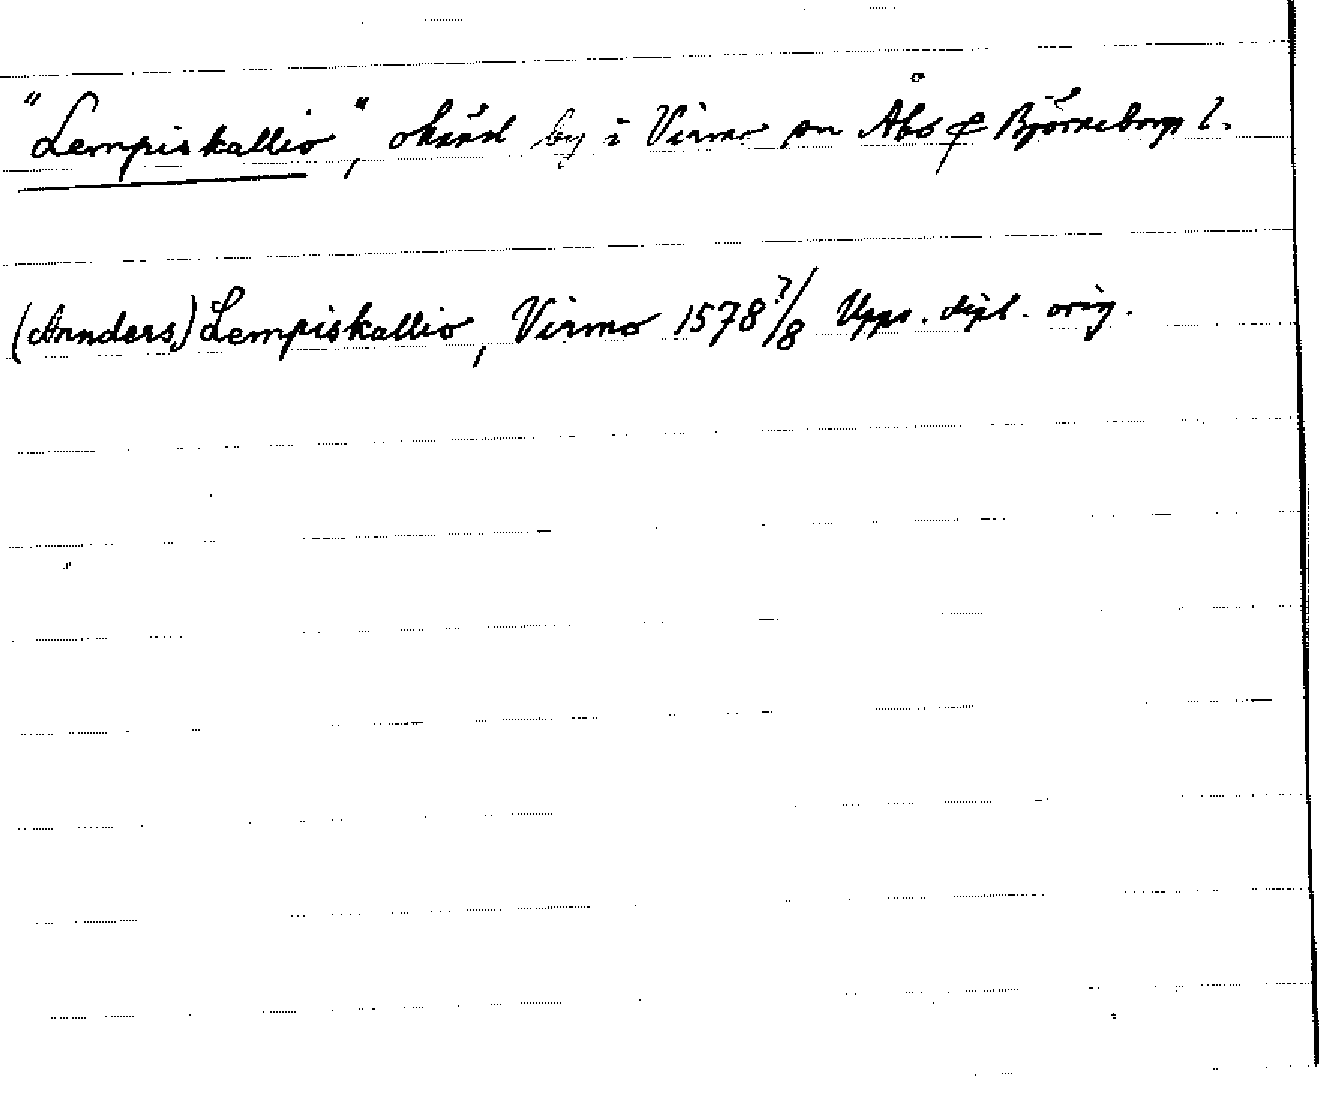 "Lempiskallio", okänd by i Virmo sn Åbo & Björneborgs l.
(Anders) Lempiskallio, Virmo 1578 7/8 Upps. dipl. orig.